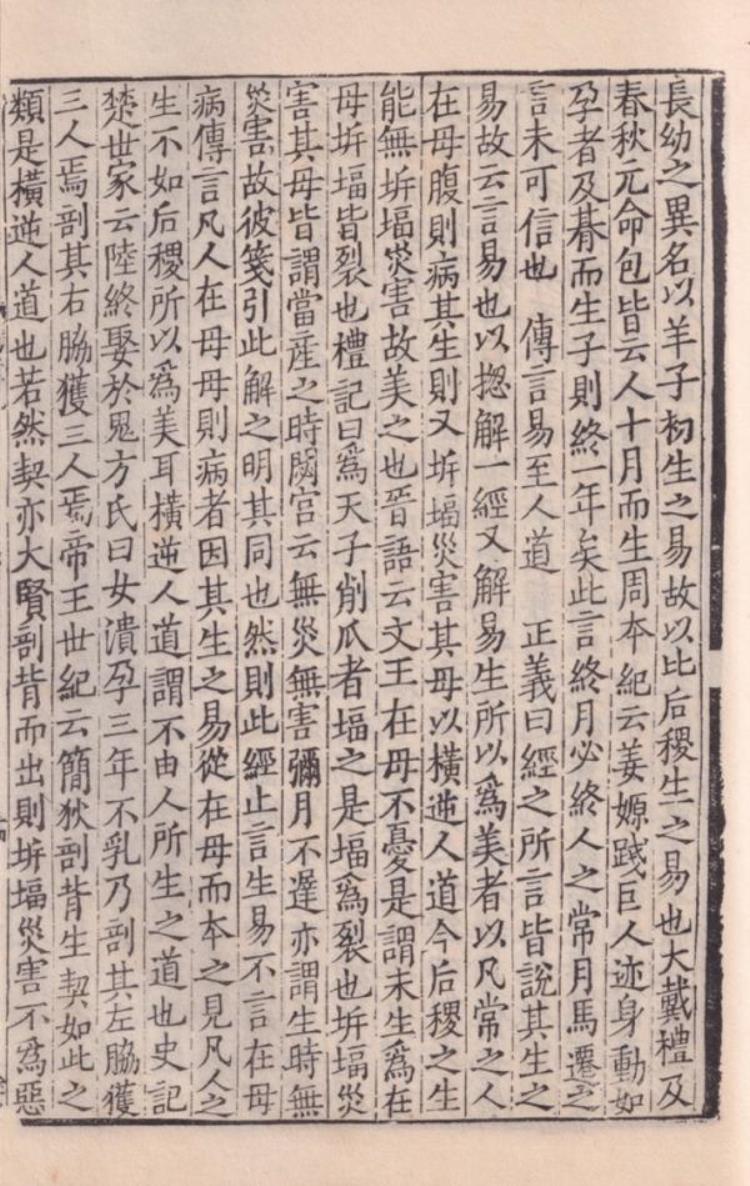 長幼之異名以羊子初生之易故以比后稷生之易也大戴禮及
春秋元命包皆云人十月而生周本紀云姜嫄踐巨人迹身動如
孕者及朞而生子則終一年矣此言終月必終人之常月馬遷之
言未可信也 傳言易至人道 正義曰經之所言皆說其生之
易故云言易也以揔解一經又解易生所以爲美者以凡常之人
在母腹則病其生則又坼堛災害其母以橫逆人道今后稷之生
能無坼堛災害故美之也晉語云文王在母不憂是謂未生爲在
母坼堛皆裂也禮記曰爲天子削瓜者堛之是堛爲裂也坼堛災
害其母皆謂當產之時閟宫云無災無害彌月不遲亦謂生時無
災害故彼箋引此解之明其同也然則此經止言生易不言在母
病傳言凡人在母母則病者因其生之易從在母而本之見凡人之
生不如后稷所以爲美耳橫逆人道謂不由人所生之道也史記
楚世家云陸終娶於鬼方氏曰女潰孕三年不乳乃剖其左脇獲
三人焉剖其右脇獲三人焉帝王世紀云簡狄剖背生契如此之
類是橫逆人道也若然契亦大賢剖背而出則坼堛災害不爲惡